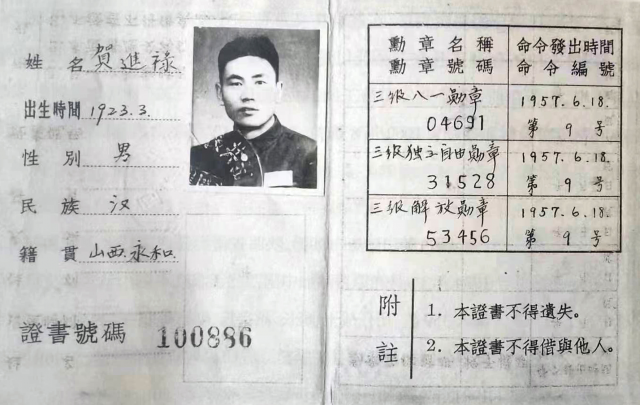 姓 名 賀進祿
出生時間 1923.3.
性 別 男
民 族 汉
籍 貫 山西.永和.
證書號碼 100886
勳章名稱 命令發出時間
勳章號碼 命令編號
三級八一勛章 1957.6.18.
04691 第 9 号
三級独立自由勛章 1957.6.18.
31528 第 9 号
三級解放勛章 1957.6.18.
53456 第 9 号
附註
1. 本證書不得遺失。
2. 本證書不得借與他人。